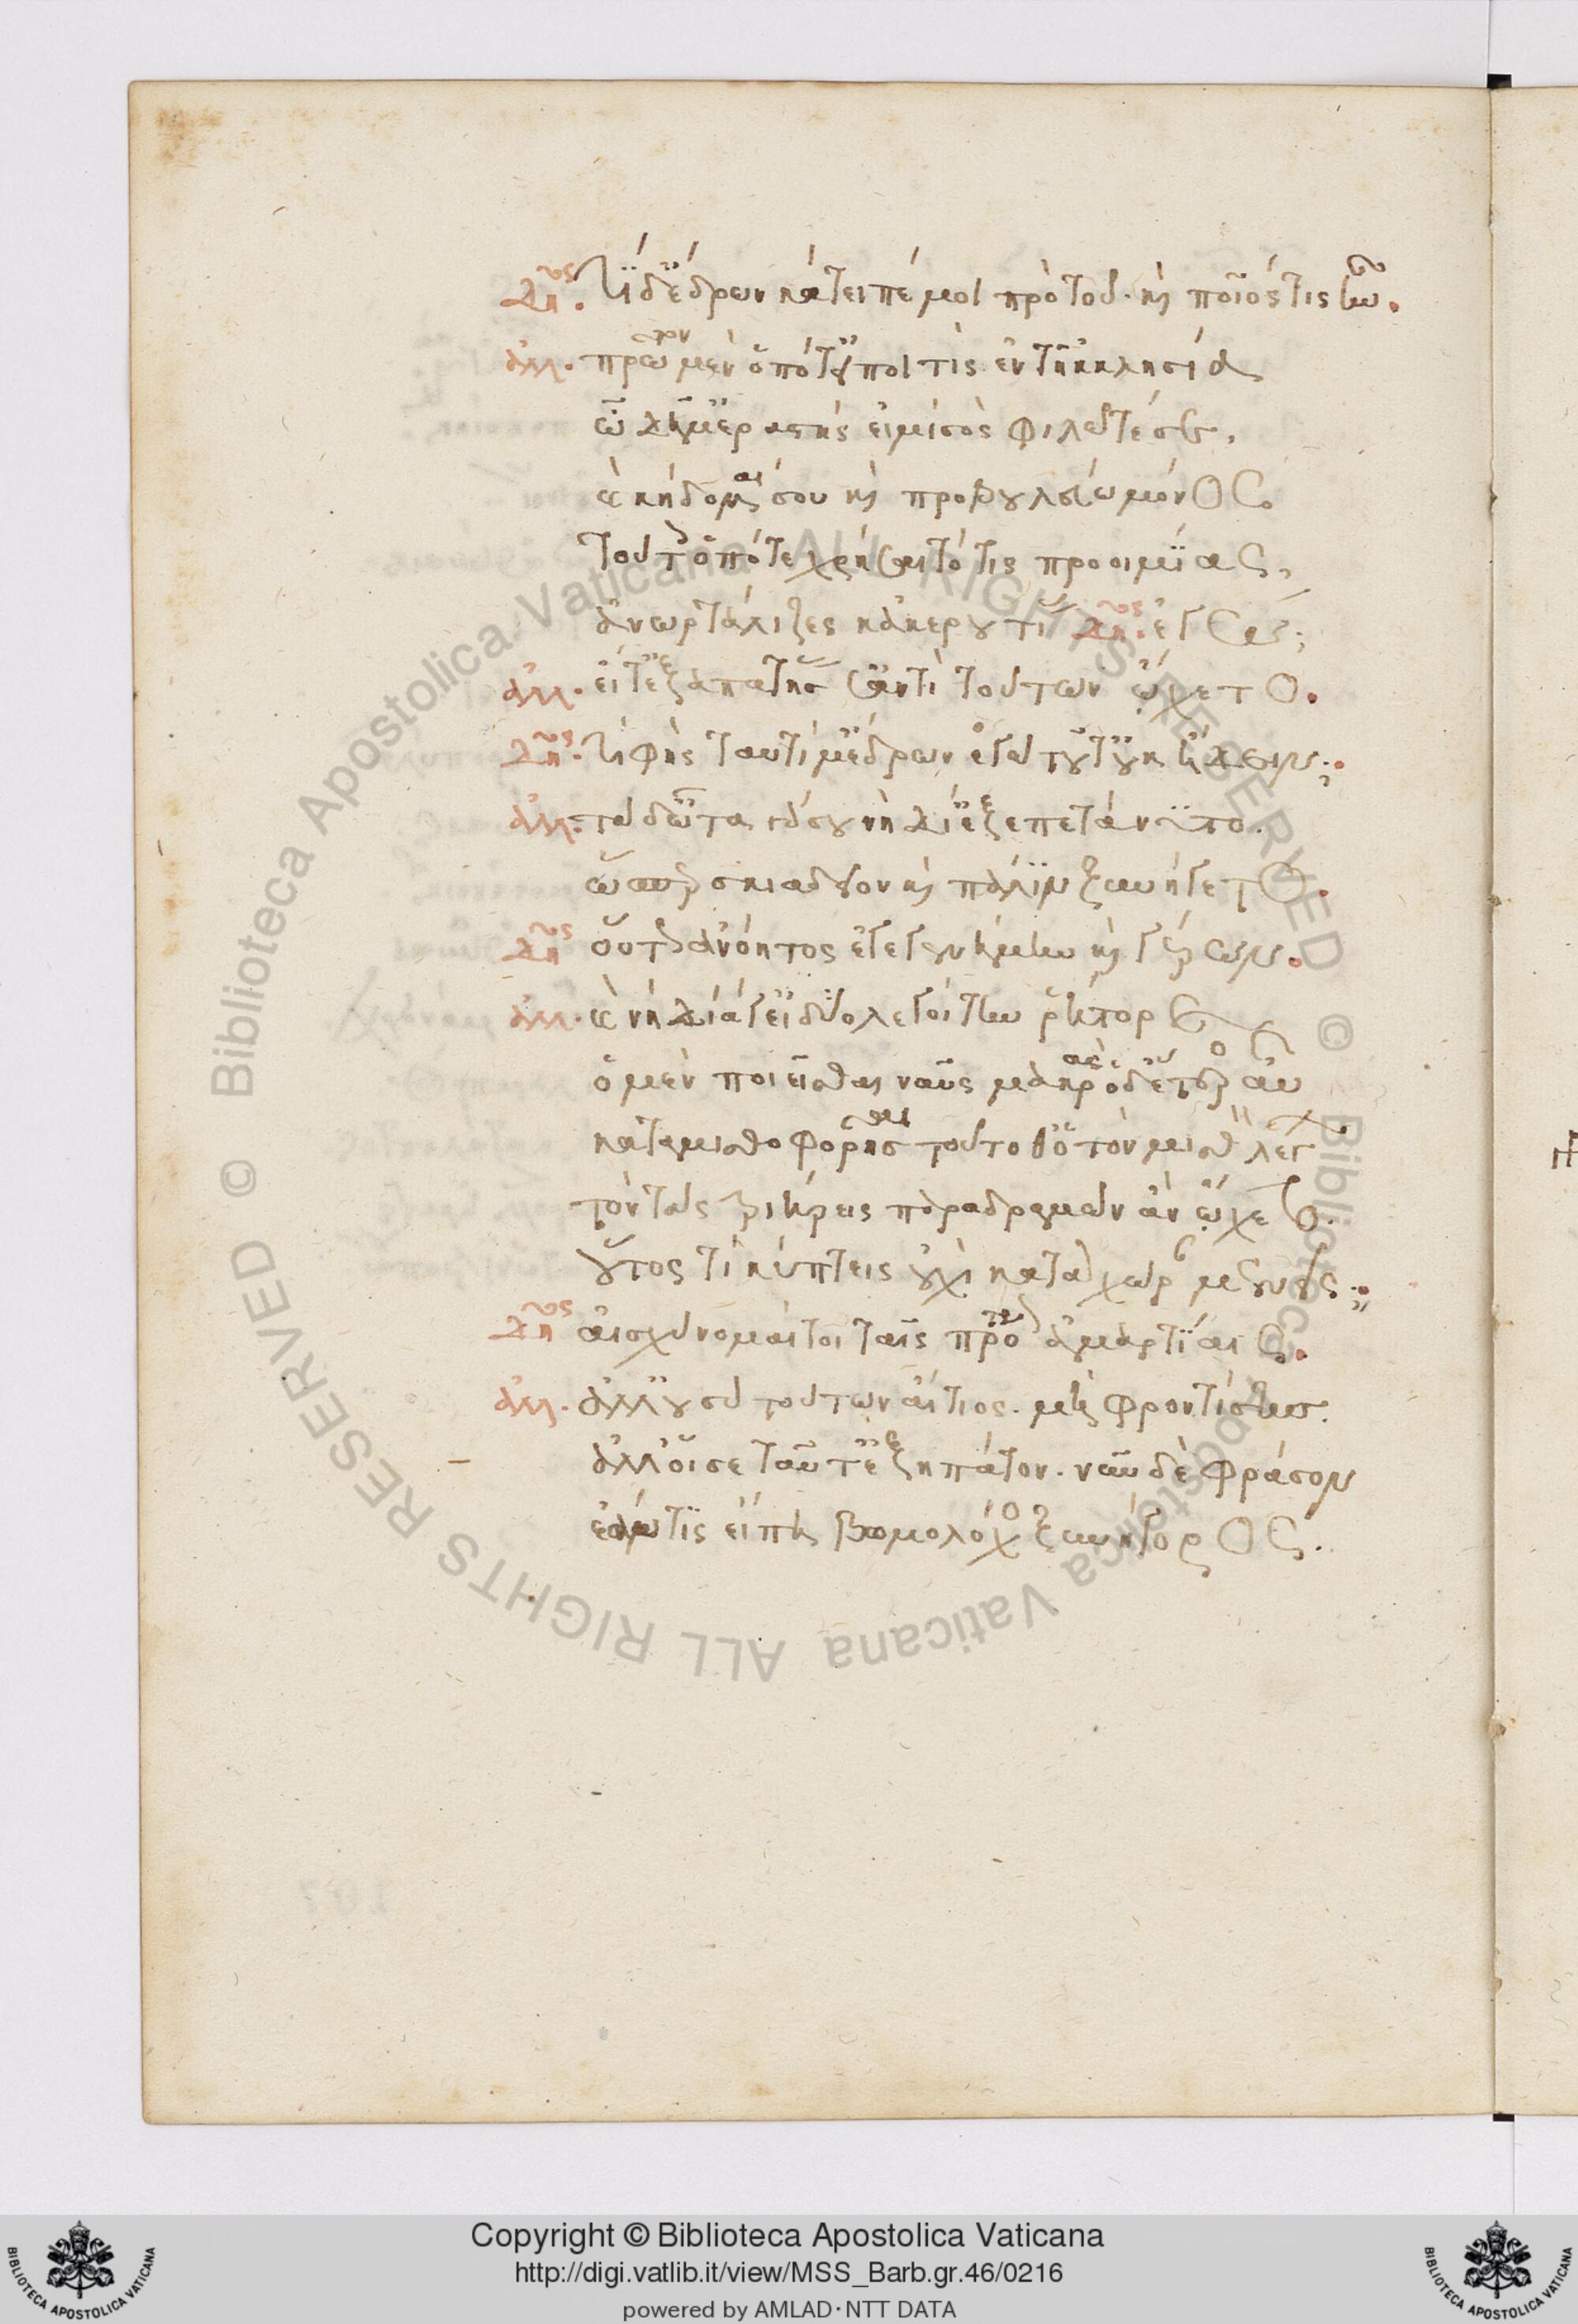 δῆμος. τί δ' ἔδρων κάτειπέ μοι πρὸ τοῦ· καὶ ποῖός τις ἦν.
ἀλλ. πρῶτον μὲν ὁπότ' εἴποι τις ἐν τῆκκλησίᾳ
ὦ δῆμ' ἐραστής εἰμι σὸς φιλῶ τέ σε,
καὶ κήδομαί σου καὶ προβουλεύω μόνος.
τούτοις ὁπότε χρήσαιτό τις προοιμίοις,
ἀνωρτάλιζες κἀκερουτίας δῆμος. ἐγώ;
ἀλλ. εἶτ' ἐξαπατήσας σ' ἀντὶ τούτων ᾤχετο.
δῆμος. τί φής ταυτί μ' ἔδρων ἐγὼ δὲ τοῦτ' οὐκ ᾐσθόμην;
ἀλλ. τὰ δ' ὦτα γάρ σου νὴ δί' ἐξεπετάννυτο.
ὥσπερ σκιάδειον καὶ πάλιν ξυνήγετο.
δῆμος οὕτως ἀνόητος ἐγεγενήμην καὶ γέρων.
ἀλλ. καὶ νὴ δία γ' εἰ δύο λεγοίτην ῥήτορε
ὁ μὲν ποιεῖσθαι ναῦς μακρὰς ὁ δ' ἕτερος αὖ
καταμισθοφορῆσαι τοῦτο ὁ τὸν μισθὸν λέγων
τὸν τὰς τριήρεις παραδραμὼν ἂν ᾤχετο.
οὗτος τί κύπτεις οὐχὶ κατὰ χώραν μενεῖς;
δῆμος αἰσχύνομαί τοι ταῖς πρότερον ἁμαρτίαις.
ἀλλ. ἀλλ' οὐ σὺ τούτων αἴτιος. μὴ φροντίσῃς.
ἀλλ' οἵ σε ταῦτ' ἐξηπάτων. νῦν δὲ φράσον
ἐάν τις εἴπῃ βωμολόχος ξυνήγορος.
Copyright © Biblioteca Apostolica Vaticana
http://digi.vatlib.it/view/MSS_Barb.gr.46/0216
powered by AMLAD·NTT DATA